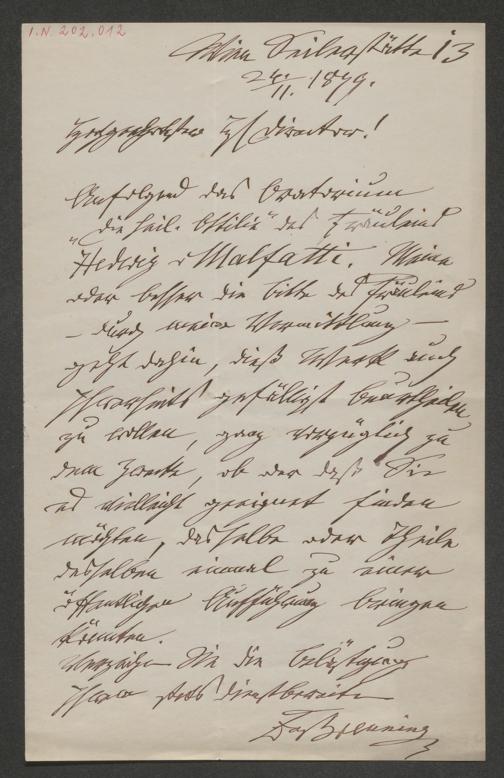 I.N. 202.012
Wien Seilerstätte 13
24./11. 1879.
Hochgeehrtester H Director!
Anfolgend das Oratorium
„die heil. Ottilie“ des Fräuleins
Hedwig v Malfatti. Meine
oder besser die bitte des Fräuleins
– durch meine Vermittlung –
geht dahin, dieß Werk auch
Ihrerseits gefälligst beurtheilen
zu wollen, ganz vorzüglich zu
dem Zwecke, ob oder daß Sie
es vielleicht geeignet finden
möchten, dasselbe oder Theile
desselben einmal zu einer
öffentlichen Aufführung bringen
könnten.
Verzeihen Sie die Belästigung
Ihres stets dienstbereiten
Breuning